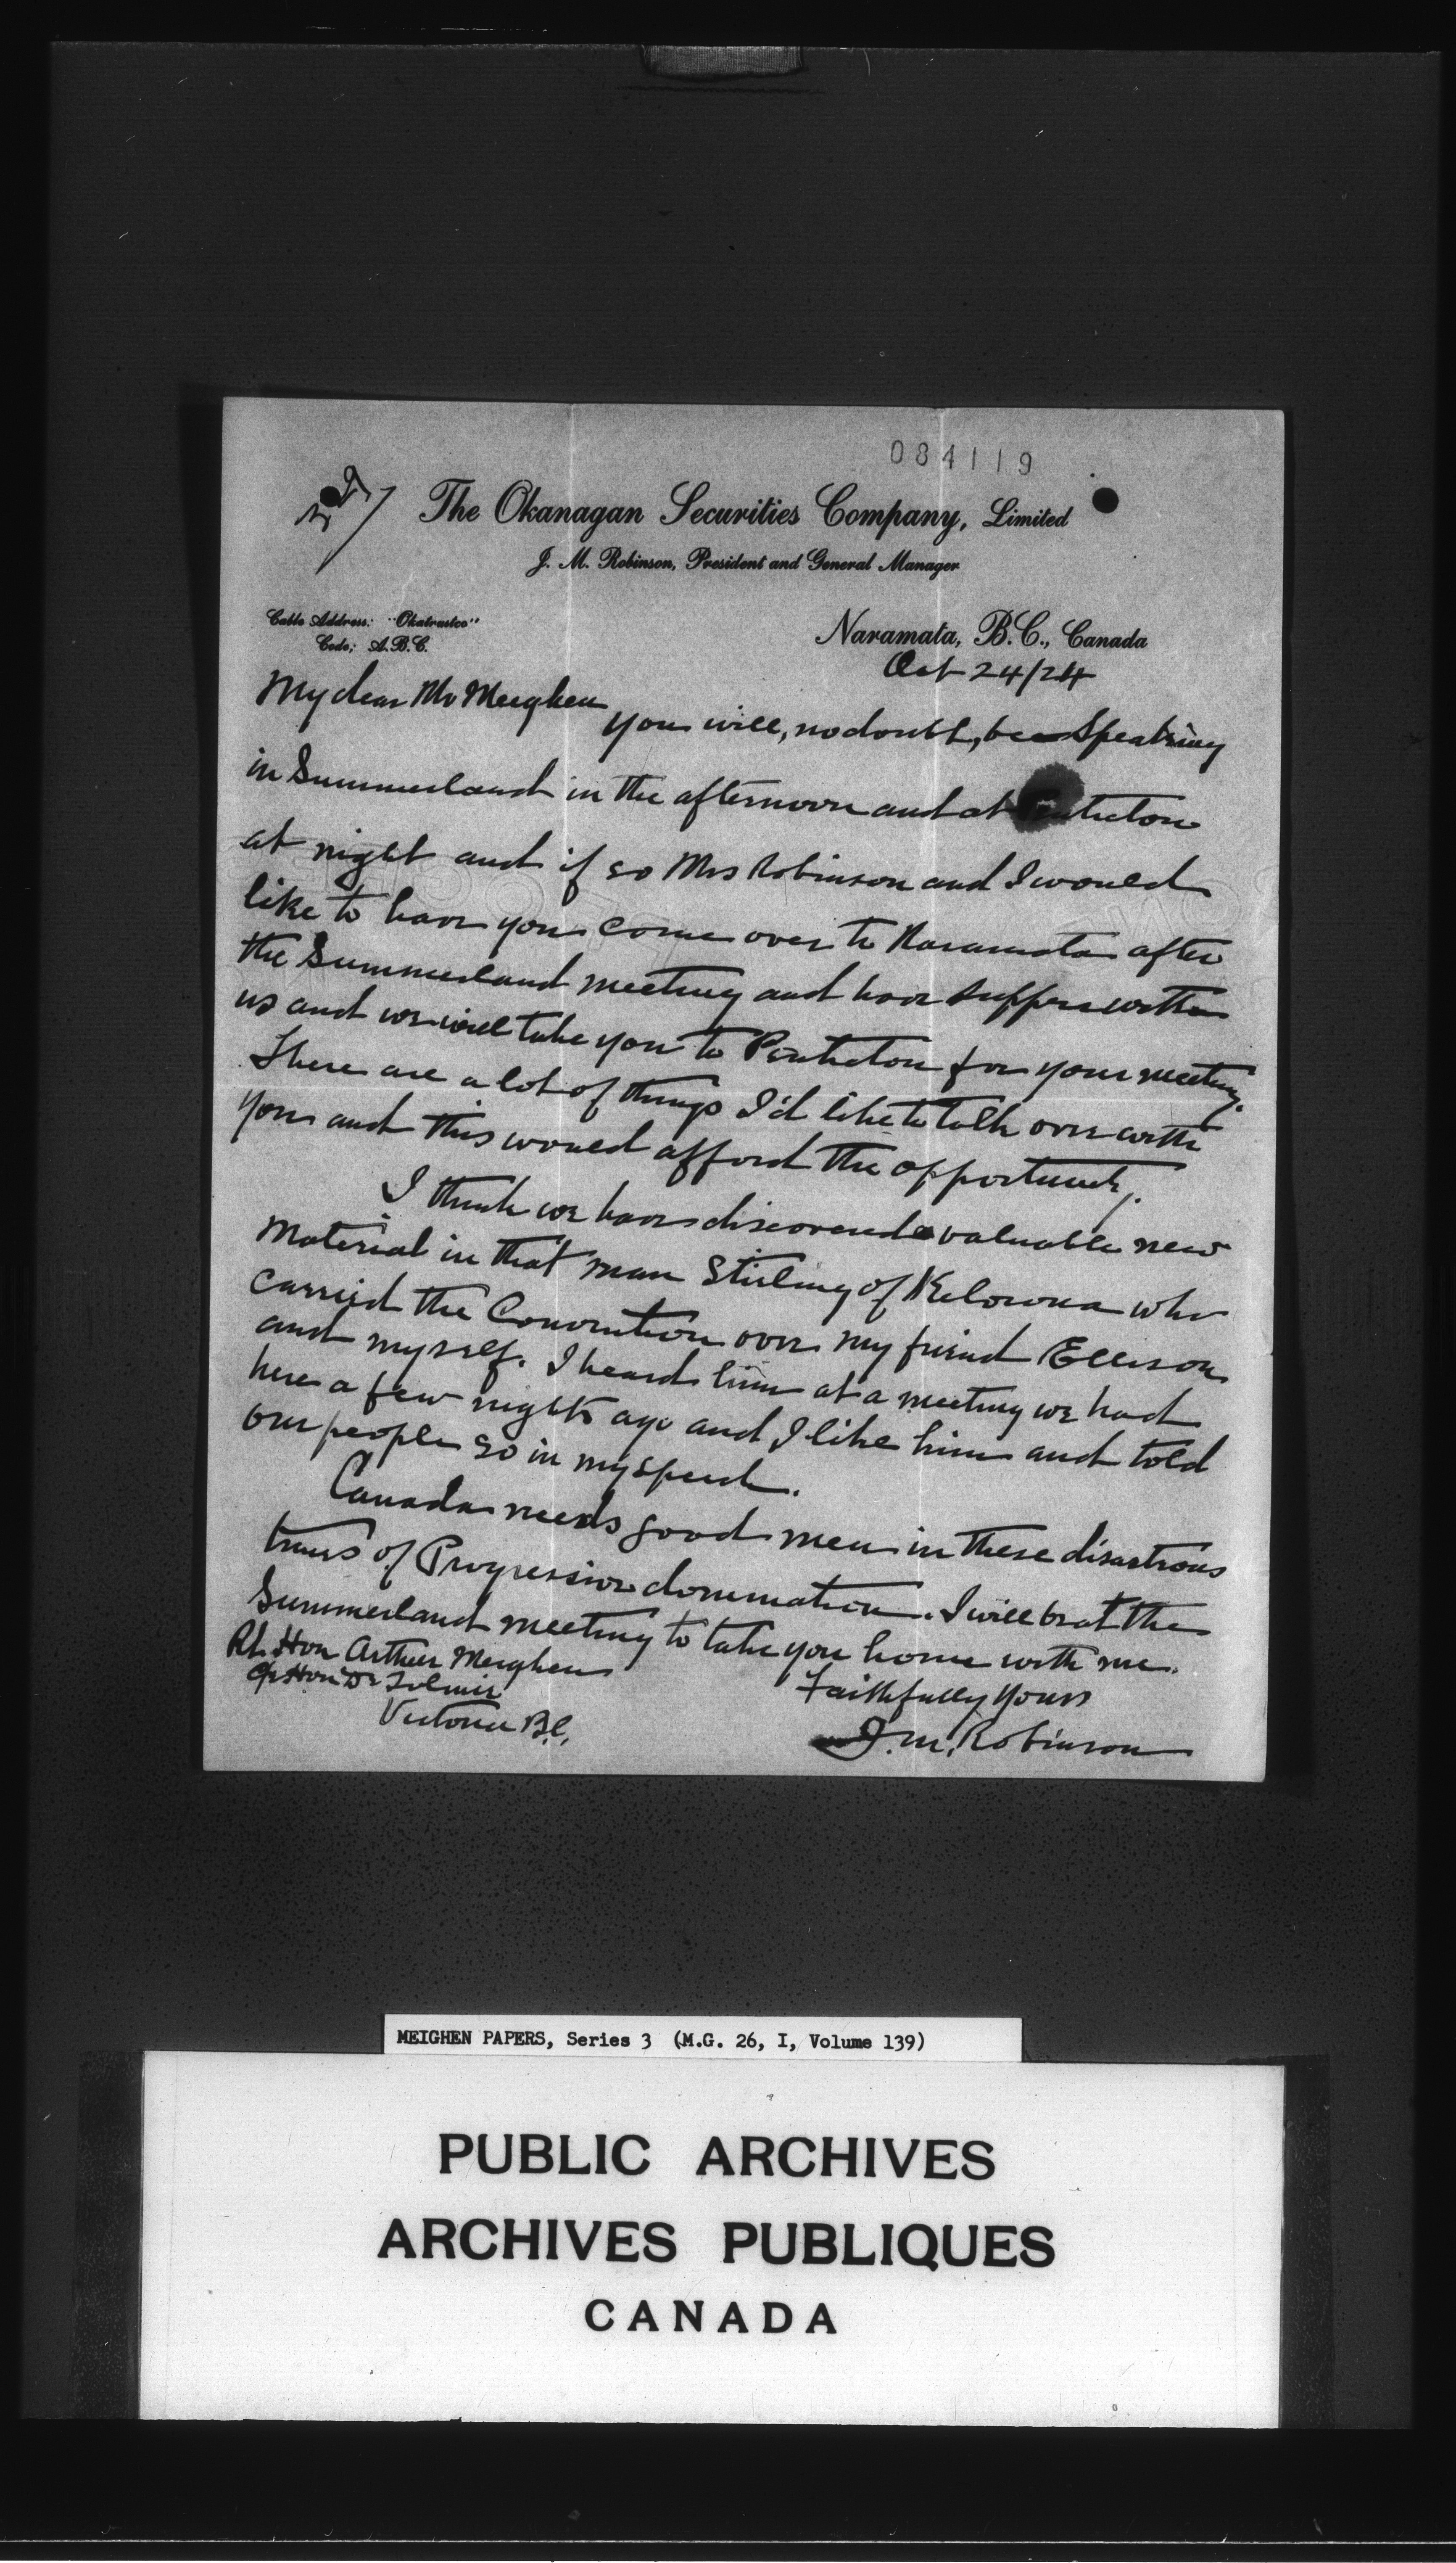 084119
The Okanagan Securities Company, Limited
J. M. Robinson, President and General Manager
Cable Address: "Okatrustco"
Code; A.B.C.
Naramata, B.C., Canada
Oct 24/24
My dear Mr Meighen
you will, no doubt, be speaking
in Summerland in the afternoon and at Penticton
at night and if so Mrs Robinson and I would
like to have you come over to Naramata after
the Summerland meeting and have supper with
us and we will take you to Penticton for your meeting.
There are a lot of things I'd like to talk over with
you and this would afford the opportunity.
I think we have discovered valuable new
material in that man Stirling of Kelowna who
carried the Convention over my friend Ellison
and myself. I heard him at a meeting we had
here a few nights ago and I like him and told
our people so in my speech.
Canada needs good men in these disastrous
times of Progressive domination. I will be at the
Summerland meeting to take you home with me.
Rt. Hon Arthur Meighen
c/o Hon Dr Tolmie
Victoria B.C.
Faithfully Yours
J. M. Robinson
MEIGHEN PAPERS, Series 3 (M.G. 26, I, Volume 139)
PUBLIC ARCHIVES
ARCHIVES PUBLIQUES
CANADA